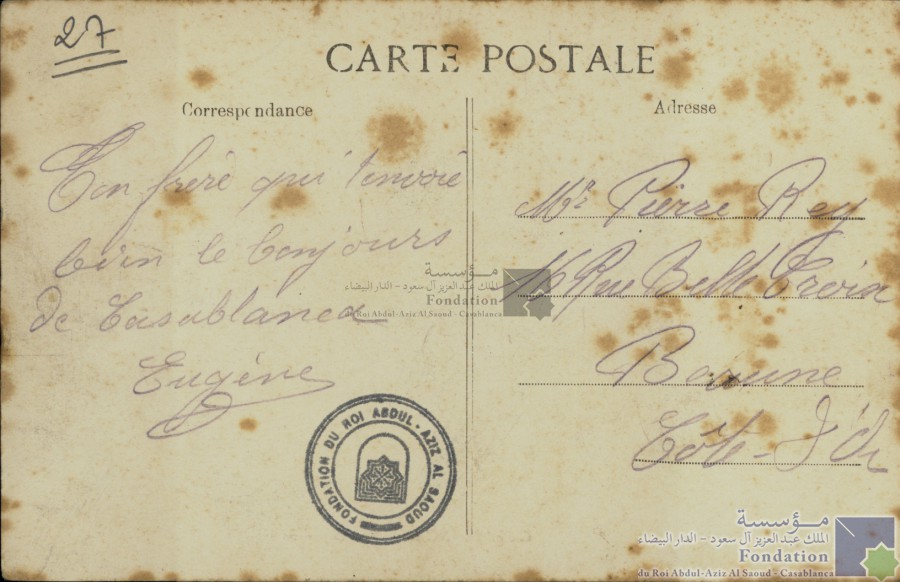 27
CARTE POSTALE
Correspondance
Ton frère qui t'envoie
bien le bonjours
de Casablanca
Eugène
Adresse
Mr Pierre Rey
16 Rue Belle Croix
Beaune
Côte-d'Or
FONDATION DU ROI ABDUL-AZIZ AL SAOUD
مؤسسة
الملك عبد العزيز آل سعود - الدار البيضاء
Fondation
du Roi Abdul-Aziz Al Saoud - Casablanca
مؤسسة
الملك عبد العزيز آل سعود - الدار البيضاء
Fondation
du Roi Abdul-Aziz Al Saoud - Casablanca